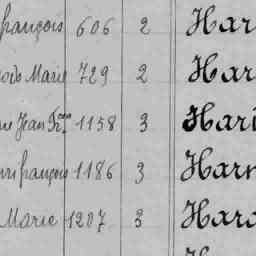 françois 606 2 Har
Marie 729 2 Har
Jean Fr.çois 1158 3 Hari
françois 1186 3 Harn
Marie 1207 3 Haro